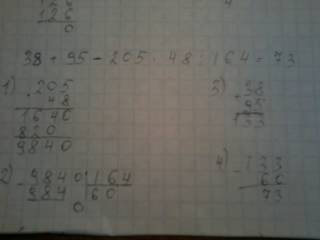 126
0
38 + 95 - 205 · 48 : 164 = 73
1) 205
48
1640
820
9840
2) - 9840 | 164
984 | 60
0
3) + 38
95
133
4) - 133
60
73